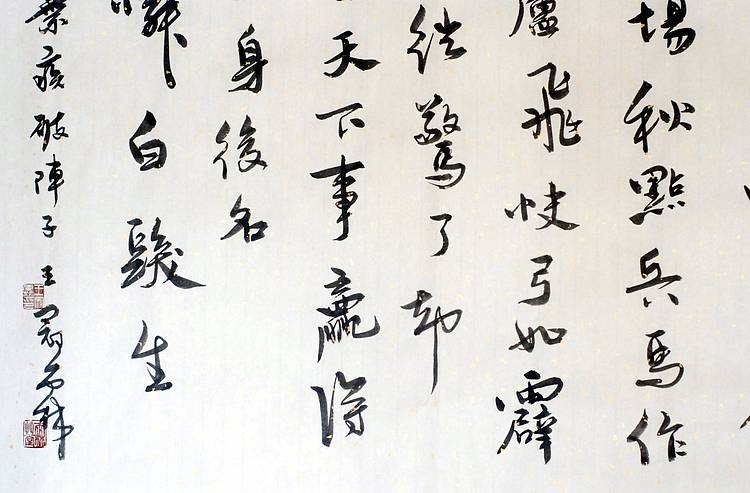 場秋點兵馬作
盧飛快弓如霹
絃驚了却
天下事贏得
身後名
憐白髮生
棄疾破陣子 王